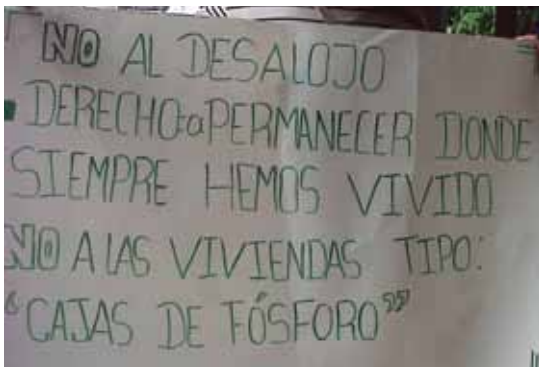 NO AL DESALOJO
DERECHO a PERMANECER DONDE
SIEMPRE HEMOS VIVIDO
NO A LAS VIVIENDAS TIPO:
"CAJAS DE FÓSFORO"